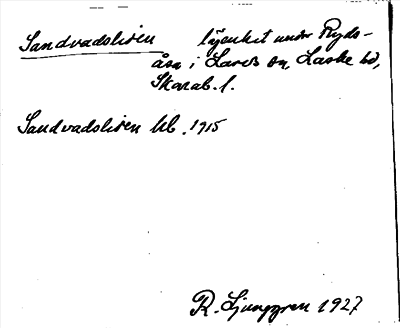 Sandvadsliden lägenhet under Ryds-
åsa i Larvs sn, Laske hd,
Skarab. l.
Sandvadsliden kb. 1915
R. Ljunggren 1927